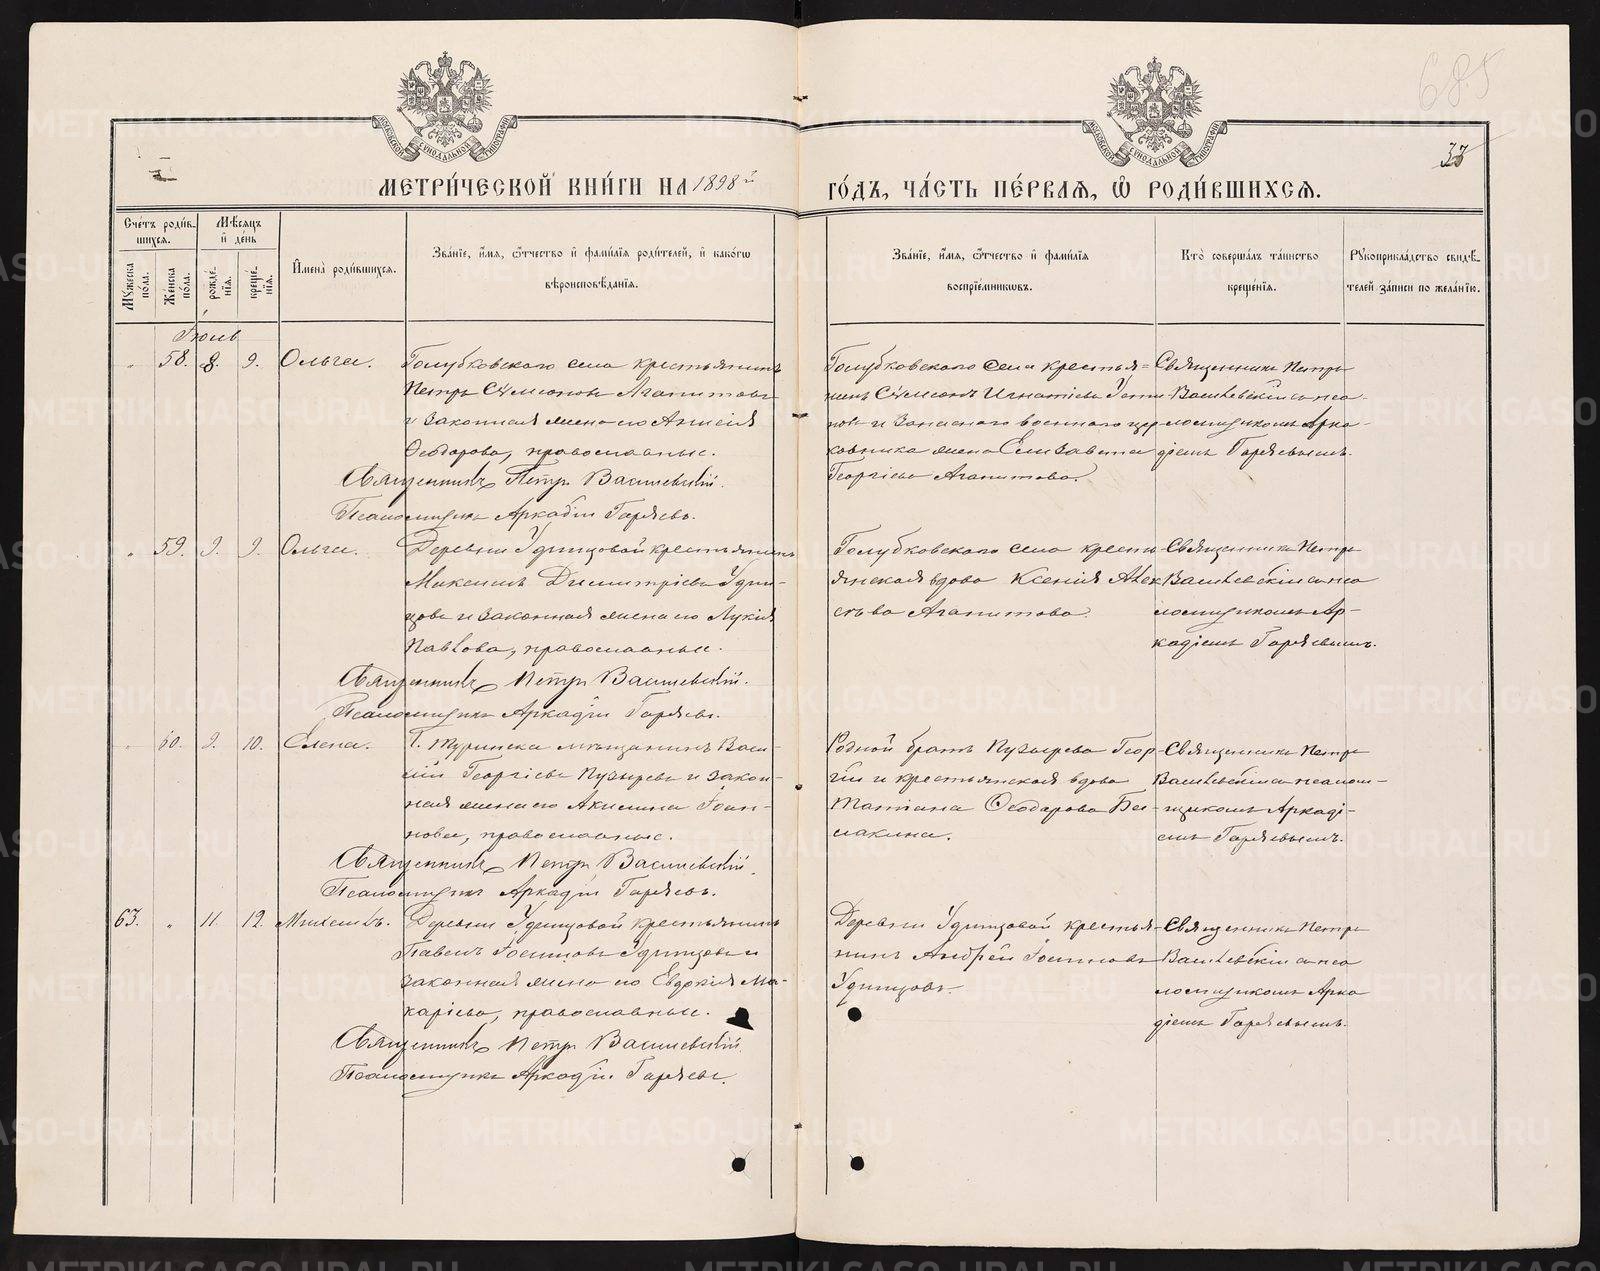 685
33
МЕТРИ́ЧЕСКОЙ КНИ́ГИ НА 1898 й ГО́ДЪ, ЧА́СТЬ ПЕ́РВАЯ, Ѡ РОДИ́ВШИХСЯ.
Сче́тъ роди́в-
шихся.
Мꙋ́жеска по́ла.
Же́нска по́ла.
Мѣ́сяцъ и де́нь
рожде́нїя.
креще́нїя.
Имена̀ роди́вшихся.
Зва́нїе, и́мя, ѻ́тчество и фами́лїя роди́телей, и како́гѡ
вѣроисповѣ́данїя.
Зва́нїе, и́мя, ѻ́тчество и фами́лїя
воспрїе́мникѡвъ.
Кто̀ соверша́лъ та́инство
креще́нїя.
Рꙋкоприкла́дство свидѣ́-
телей за́писи по жела́нїю.
Іюль
" 58. 8. 9. Ольга.
Голубковскаго села крестьянинъ
Петръ Сѵмеоновъ Агапитовъ
и законная жена его Анисія
Ѳеодорова, православные.
Священникъ Петръ Василевскій.
Псаломщикъ Аркадій Гаряевъ.
Голубковскаго села крестья-
нинъ Сѵмеонъ Игнатіевъ
и запаснаго военнаго
жена Елизавета
Георгіева Агапитова.
Священникъ Петръ
Василевскій съ пса-
ломщикомъ Арка-
діемъ Гаряевымъ.
" 59. 9. 9. Ольга.
Деревни Удинцовой крестьянинъ
Максимъ Димитріевъ Удин-
цовъ и законная жена его Лукія
Павлова, православные.
Священникъ Петръ Василевскій.
Псаломщикъ Аркадій Гаряевъ.
Голубковскаго села кресть-
янская вдова Ксенія Алек
сѣева Агапитова.
Священникъ Петръ
Василевскій съ пса
ломщикомъ Ар-
кадіемъ Гаряевымъ.
" 60. 9. 10. Елена.
Г. Туринска мѣщанинъ Васи-
лій Георгіевъ Пузыревъ и закон-
ная жена его Акилина Іоан-
нова, православные.
Священникъ Петръ Василевскій.
Псаломщикъ Аркадій Гаряевъ.
Родной братъ Пузырева Геор-
гій и крестьянская вдова
Татіана Ѳеодорова Бѣ-
лакина.
Священникъ Петръ
Василевскій съ псалом-
щикомъ Аркаді-
емъ Гаряевымъ.
63. " 11. 12. Михаилъ.
Деревни Удинцовой крестьянинъ
Павелъ Іоанновъ Удинцовъ и
законная жена его Евдокія Ма-
каріева, православные.
Священникъ Петръ Василевскій.
Псаломщикъ Аркадій Гаряевъ.
Деревни Удинцовой крестья-
нинъ Андрей Іоанновъ
Удинцовъ.
Священникъ Петръ
Василевскій съ пса
ломщикомъ Арка
діемъ Гаряевымъ.
METRIKI.GASO-URAL.RU